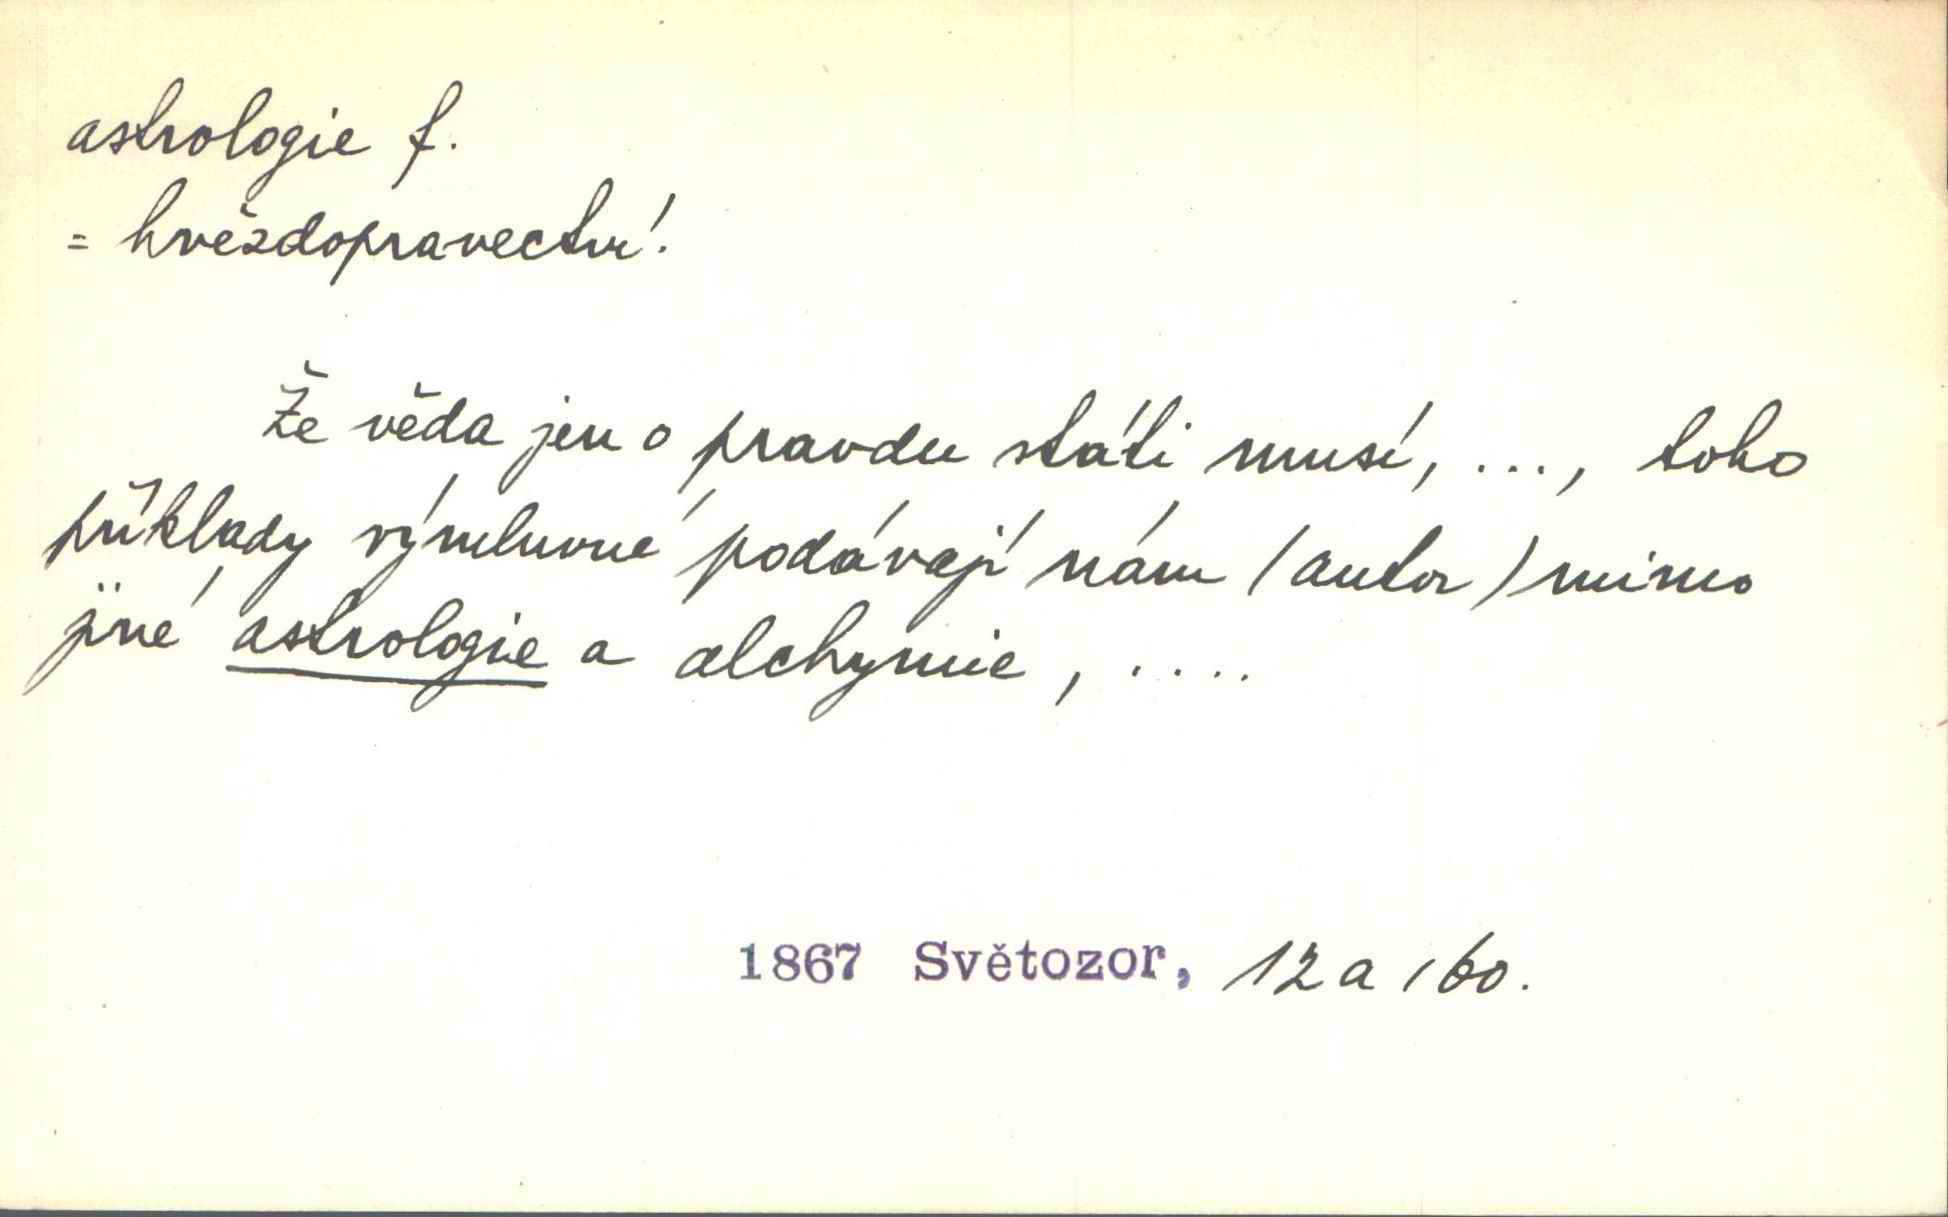 astrologie f.
= hvězdopravectví.
Že věda jen o pravdu státi musí, ..., toho
příklady výmluvné podávají nám (autor) mimo
jiné astrologie a alchymie, ....
1867 Světozor, 12 a 160.